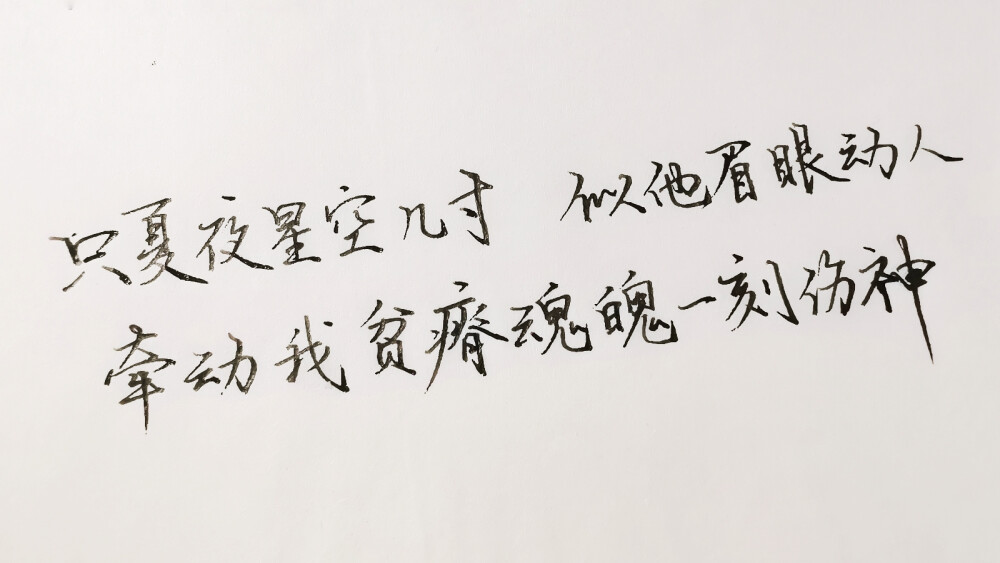 只夏夜星空几寸 似他眉眼动人
牵动我贫瘠魂魄一刻伤神